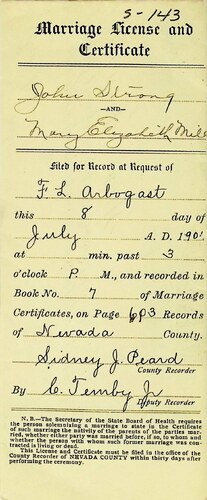 S-143
Marriage License and
Certificate
John Strong
—AND—
Mary Elizabeth Mill
Filed for Record at Request of
F. L. Arbogast
this 8 day of
July A. D. 190
at min. past 3
o'clock P. M., and recorded in
Book No. 7 of Marriage
Certificates, on Page 603 Records
of Nevada County.
Sidney J. Peard
County Recorder
By C. Temby Jr.
Deputy Recorder
N. B.—The Secretary of the State Board of Health requires
the person solemnizing a marriage to state in the Certificate
of such marriage the nativity of the parents of the parties married,
whether either party was married before, if so, to whom and
whether the person with whom such former marriage was contracted
is living or dead.
This License and Certificate must be filed in the office of the
County Recorder of NEVADA COUNTY within thirty days after
performing the ceremony.